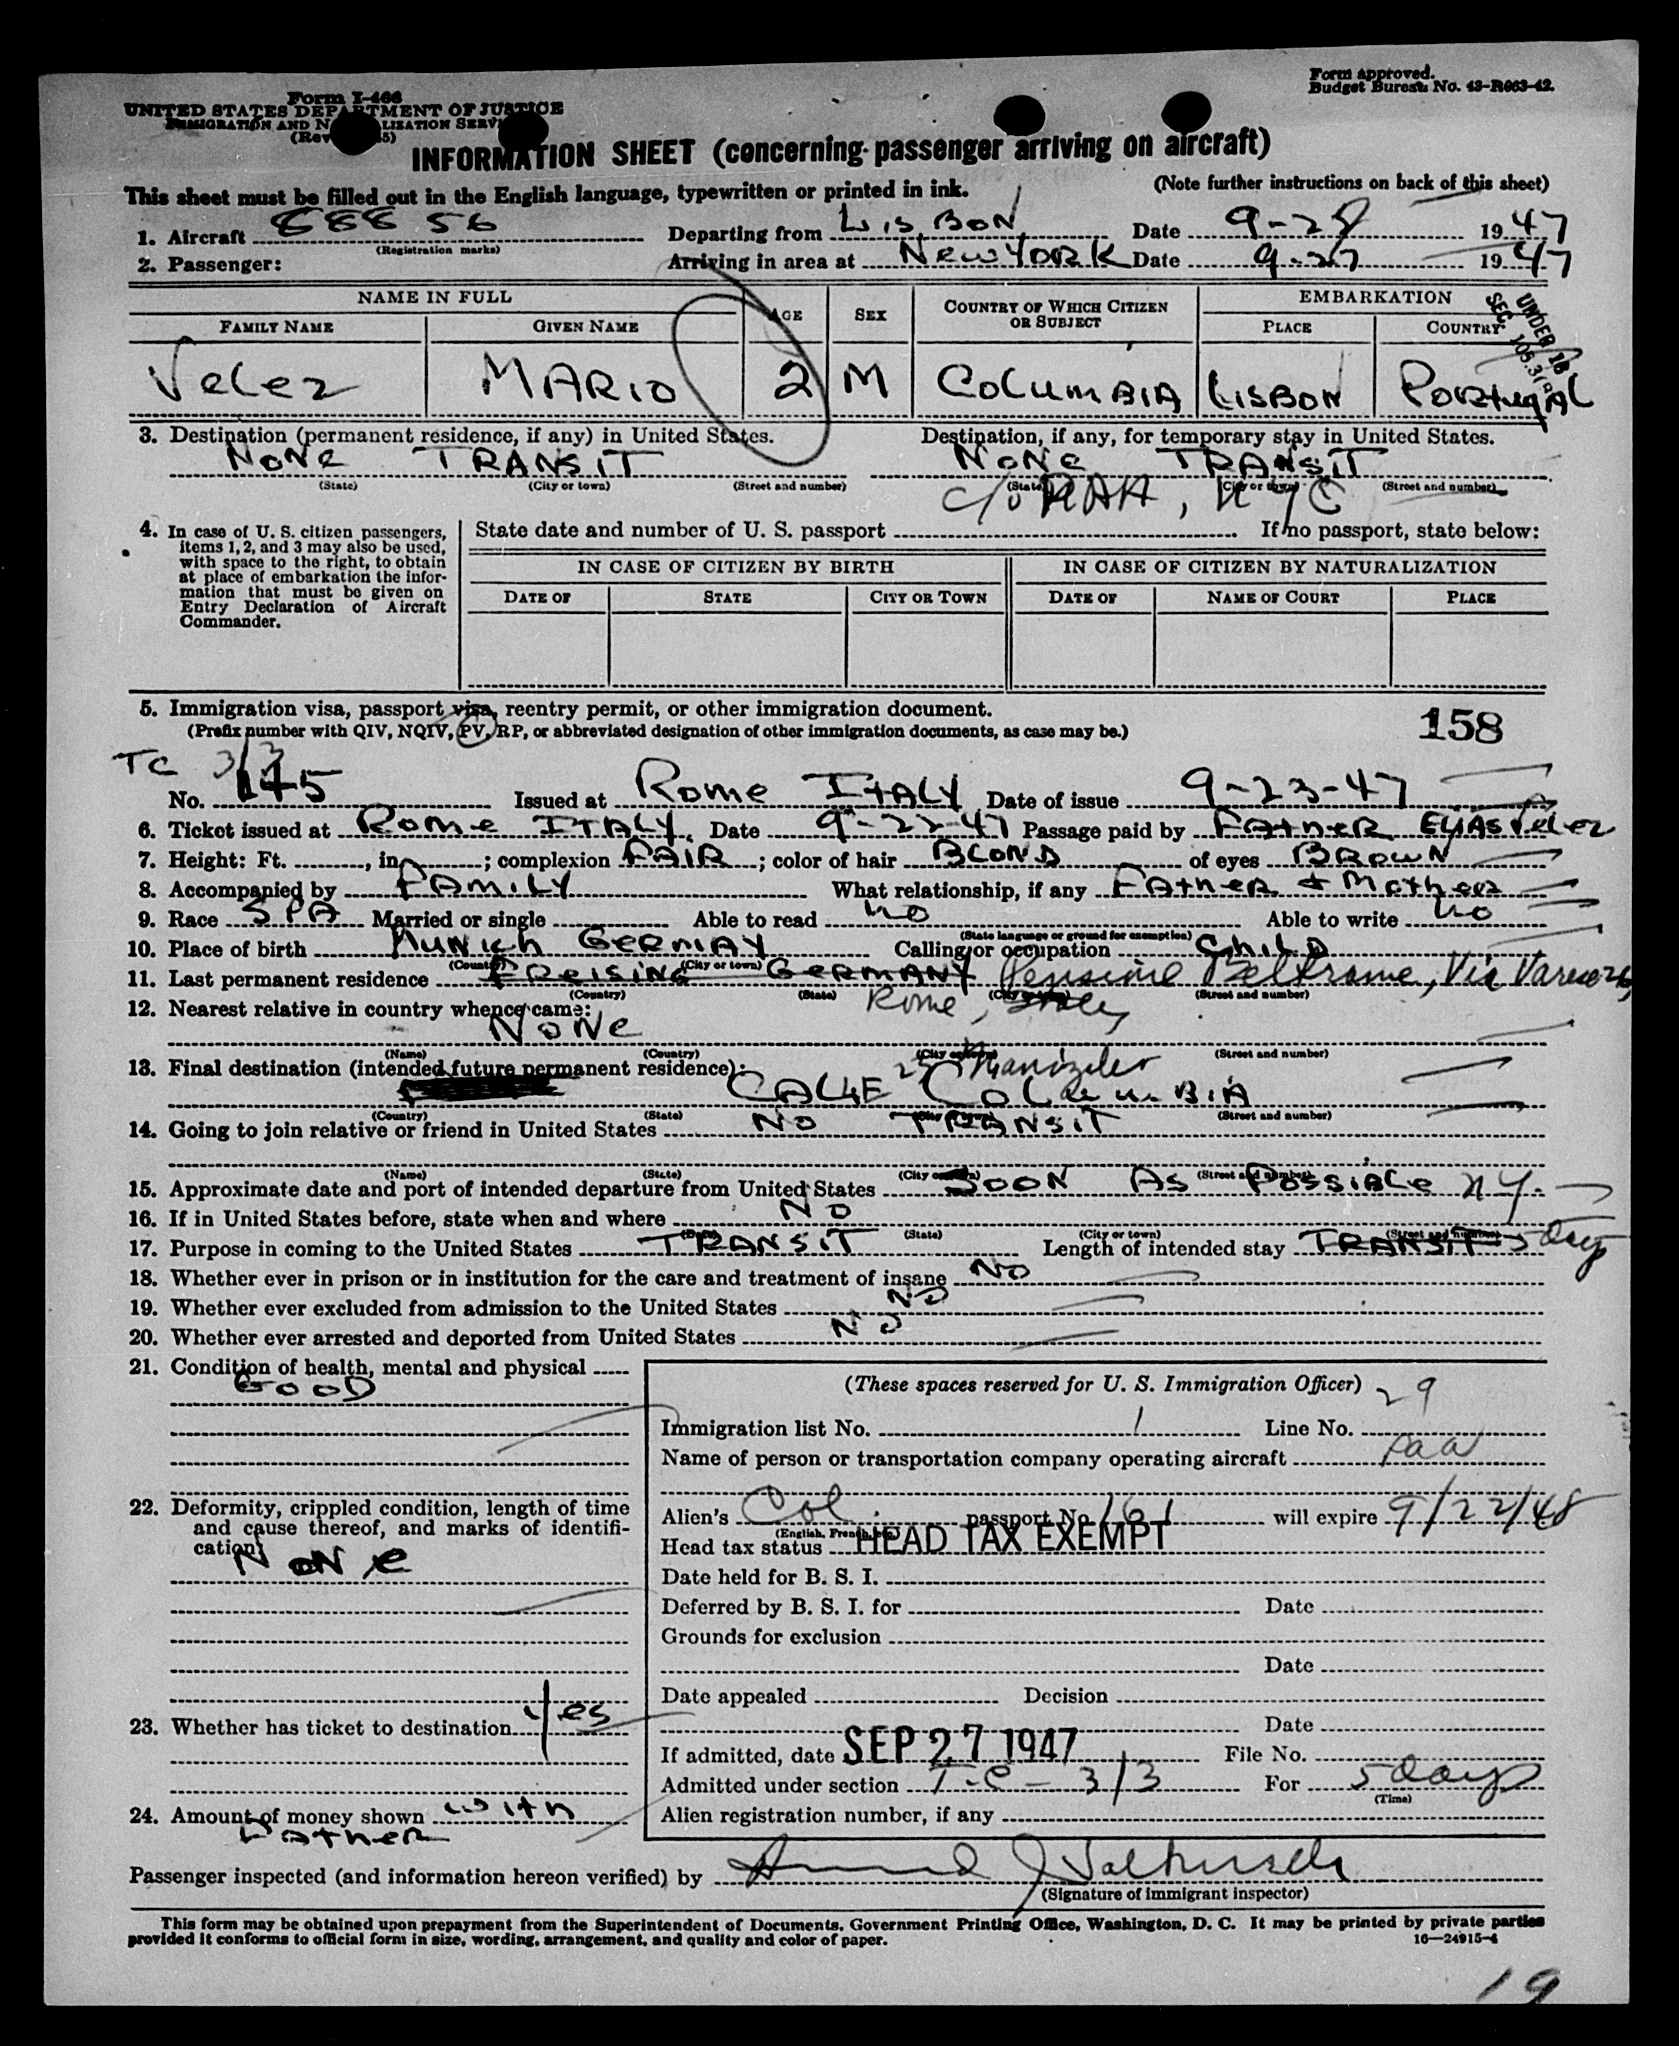 Form I-466
UNITED STATES DEPARTMENT OF JUSTICE
IMMIGRATION AND N LIZATION SERV
(Rev 5)
Form approved.
Budget Bureau No. 43-R063-42.
INFORMATION SHEET (concerning passenger arriving on aircraft)
This sheet must be filled out in the English language, typewritten or printed in ink. (Note further instructions on back of this sheet)
1. Aircraft 88856 Departing from LISBON Date 9-2 1947
(Registration marks)
2. Passenger: Arriving in area at NEW YORK Date 9-27 1947
NAME IN FULL AGE SEX COUNTRY OF WHICH CITIZEN OR SUBJECT EMBARKATION
FAMILY NAME GIVEN NAME PLACE COUNTRY
UNDER 16
SEC. 105.3(
Velez MARIO 2 M COLUMBIA LISBON PORTUGAL
3. Destination (permanent residence, if any) in United States. Destination, if any, for temporary stay in United States.
NONE TRANSIT NONE TRANSIT
(State) (City or town) (Street and number) (State) (City or town) (Street and number)
c/o PAA, NYC
4. In case of U. S. citizen passengers, items 1, 2, and 3 may also be used, with space to the right, to obtain at place of embarkation the information that must be given on Entry Declaration of Aircraft Commander.
State date and number of U. S. passport If no passport, state below:
IN CASE OF CITIZEN BY BIRTH IN CASE OF CITIZEN BY NATURALIZATION
DATE OF STATE CITY OR TOWN DATE OF NAME OF COURT PLACE
5. Immigration visa, passport visa, reentry permit, or other immigration document.
(Prefix number with QIV, NQIV, PV, RP, or abbreviated designation of other immigration documents, as case may be.)
158
TC 3/3
No. 145 Issued at Rome ITALY Date of issue 9-23-47
6. Ticket issued at Rome ITALY Date 9-22-47 Passage paid by FATHER ELIAS Velez
7. Height: Ft. , in. ; complexion FAIR ; color of hair BLOND of eyes BROWN
8. Accompanied by FAMILY What relationship, if any FATHER & Mother
9. Race SPA Married or single Able to read NO Able to write NO
(State language or ground for exemption)
10. Place of birth MUNICH GERMAY Calling or occupation CHILD
(Country) (City or town)
11. Last permanent residence FREISING GERMANY Pensione Beltrame, Via Varese 26,
(Country) (State) (City or town) (Street and number)
Rome, Italy
12. Nearest relative in country whence came:
NONE
(Name) (Country) (City or town) (Street and number)
13. Final destination (intended future permanent residence):
CALLE 25 Manizales COLUMBIA
(Country) (State) (City or town) (Street and number)
14. Going to join relative or friend in United States NO TRANSIT
(Name) (State) (City or town) (Street and number)
15. Approximate date and port of intended departure from United States SOON AS POSSIBLE NY.
16. If in United States before, state when and where NO
(Date) (State) (City or town) (Street and number)
17. Purpose in coming to the United States TRANSIT Length of intended stay TRANSIT 5 days
18. Whether ever in prison or in institution for the care and treatment of insane NO
19. Whether ever excluded from admission to the United States NO
20. Whether ever arrested and deported from United States NO
21. Condition of health, mental and physical
GOOD
22. Deformity, crippled condition, length of time and cause thereof, and marks of identification
NONE
23. Whether has ticket to destination Yes
24. Amount of money shown WITH
Father
(These spaces reserved for U. S. Immigration Officer)
Immigration list No. 1 Line No. 29
Name of person or transportation company operating aircraft paa
Alien's Col. passport No. 161 will expire 9/22/48
(English, French, etc.)
Head tax status HEAD TAX EXEMPT
Date held for B. S. I.
Deferred by B. S. I. for Date
Grounds for exclusion
Date
Date appealed Decision
Date
If admitted, date SEP 27 1947 File No.
Admitted under section T-C- 3/3 For 5 days
(Time)
Alien registration number, if any
Passenger inspected (and information hereon verified) by
(Signature of immigrant inspector)
This form may be obtained upon prepayment from the Superintendent of Documents, Government Printing Office, Washington, D. C. It may be printed by private parties
provided it conforms to official form in size, wording, arrangement, and quality and color of paper.
16—24915-4
19